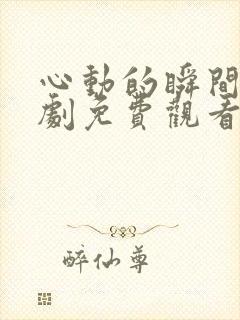 心動的瞬間
劇免費觀看
醉仙尊